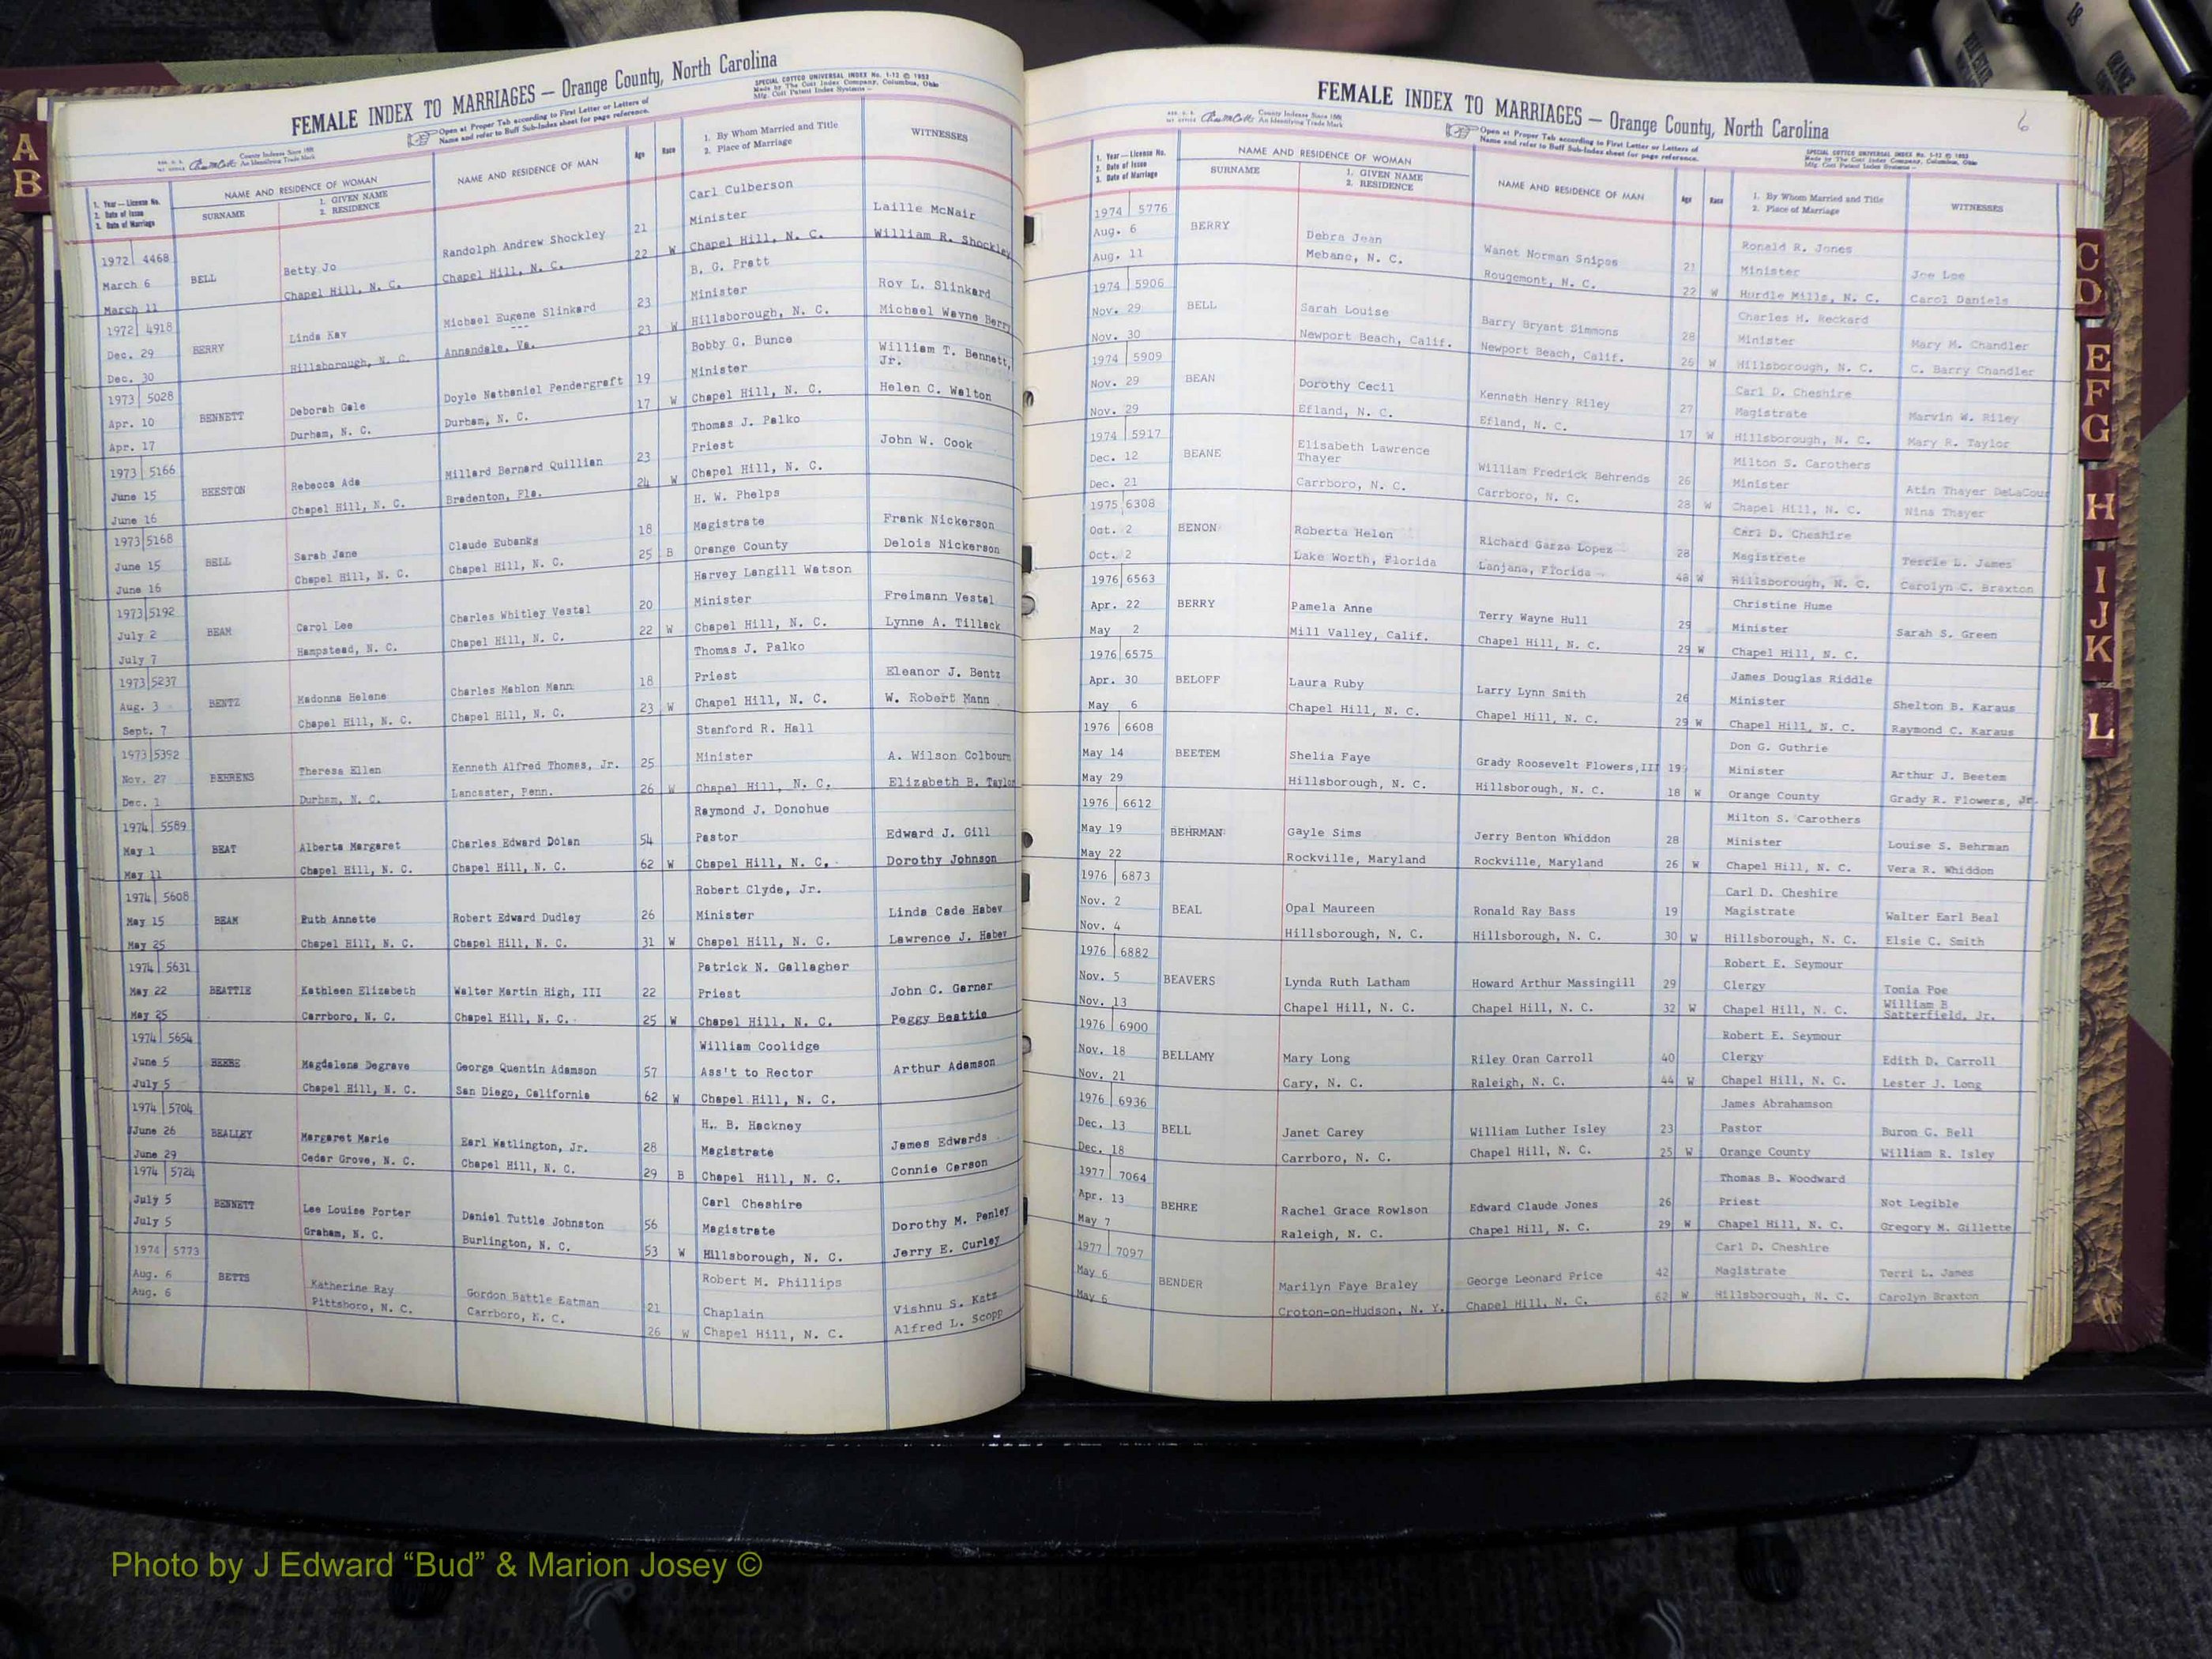 FEMALE INDEX TO MARRIAGES — Orange County, North Carolina
Open at Proper Tab according to First Letter or Letters of
Name and refer to Buff Sub-Index sheet for page reference.
SPECIAL COTTCO UNIVERSAL INDEX No. 1-12 © 1953
Made by The Cott Index Company, Columbus, Ohio
Mfg. Cott Patent Index Systems
County Indexes Since 1888
An Identifying Trade Mark
1. Year — License No.
2. Date of Issue
3. Date of Marriage
NAME AND RESIDENCE OF WOMAN
SURNAME
1. GIVEN NAME
2. RESIDENCE
NAME AND RESIDENCE OF MAN
Age
Race
1. By Whom Married and Title
2. Place of Marriage
WITNESSES
Carl Culberson
1972 4468 Randolph Andrew Shockley 21 Minister Laille McNair
March 6 BELL Betty Jo Chapel Hill, N. C. 22 W Chapel Hill, N. C. William R. Shockley
March 11 Chapel Hill, N. C.
B. G. Pratt
1972 4918 Michael Eugene Slinkard 23 Minister Roy L. Slinkard
Dec. 29 BERRY Linda Kay --- 23 W Hillsborough, N. C. Michael Wayne Berry
Dec. 30 Hillsborough, N. C. Annandale, Va.
Bobby G. Bunce
1973 5028 Doyle Nathaniel Pendergraft 19 Minister William T. Bennett, Jr.
Apr. 10 BENNETT Deborah Gale Durham, N. C. 17 W Chapel Hill, N. C. Helen C. Walton
Apr. 17 Durham, N. C.
Thomas J. Palko
1973 5166 Millard Bernard Quillian 23 Priest John W. Cook
June 15 BEESTON Rebecca Ada Bradenton, Fla. 24 W Chapel Hill, N. C.
June 16 Chapel Hill, N. C.
H. W. Phelps
1973 5168 Claude Eubanks 18 Magistrate Frank Nickerson
June 15 BELL Sarah Jane Chapel Hill, N. C. 25 B Orange County Delois Nickerson
June 16 Chapel Hill, N. C.
Harvey Langill Watson
1973 5192 Charles Whitley Vestal 20 Minister Freimann Vestal
July 2 BEAM Carol Lee Chapel Hill, N. C. 22 W Chapel Hill, N. C. Lynne A. Tillack
July 7 Hampstead, N. C.
Thomas J. Palko
1973 5237 Charles Mahlon Mann 18 Priest Eleanor J. Bentz
Aug. 3 BENTZ Madonna Helene Chapel Hill, N. C. 23 W Chapel Hill, N. C. W. Robert Mann
Sept. 7 Chapel Hill, N. C.
Stanford R. Hall
1973 5392 Kenneth Alfred Thomas, Jr. 25 Minister A. Wilson Colbourn
Nov. 27 BEHRENS Theresa Ellen Lancaster, Penn. 26 W Chapel Hill, N. C. Elizabeth B. Taylor
Dec. 1 Durham, N. C.
Raymond J. Donohue
1974 5589 Charles Edward Dolan 54 Pastor Edward J. Gill
May 1 BEAT Alberta Margaret Chapel Hill, N. C. 62 W Chapel Hill, N. C. Dorothy Johnson
May 11 Chapel Hill, N. C.
Robert Clyde, Jr.
1974 5608 26 Minister Linda Cade Habev
May 15 BEAM Ruth Annette Robert Edward Dudley
May 25 Chapel Hill, N. C. Chapel Hill, N. C. 31 W Chapel Hill, N. C. Lawrence J. Habev
Patrick N. Gallagher
1974 5631
May 22 BEATTIE Kathleen Elizabeth Walter Martin High, III 22 Priest John C. Garner
May 25 Carrboro, N. C. Chapel Hill, N. C. 25 W Chapel Hill, N. C. Peggy Beattie
William Coolidge
1974 5654
June 5 BEEBE Magdalena Degrave George Quentin Adamson 57 Ass't to Rector Arthur Adamson
July 5 Chapel Hill, N. C. San Diego, California 62 W Chapel Hill, N. C.
1974 5704 H. B. Hackney
June 26 BEALLEY Margaret Marie Earl Watlington, Jr. 28 Magistrate James Edwards
June 29 Cedar Grove, N. C. Chapel Hill, N. C. 29 B Chapel Hill, N. C. Connie Carson
1974 5724 Carl Cheshire
July 5 BENNETT Lee Louise Porter Daniel Tuttle Johnston 56 Magistrate Dorothy M. Penley
July 5 Graham, N. C. Burlington, N. C. 53 W Hillsborough, N. C. Jerry E. Curley
1974 5773 Robert M. Phillips
Aug. 6 BETTS Katherine Ray Gordon Battle Eatman 21 Chaplain Vishnu S. Katz
Aug. 6 Pittsboro, N. C. Carrboro, N. C. 26 W Chapel Hill, N. C. Alfred L. Scopp
6
FEMALE INDEX TO MARRIAGES — Orange County, North Carolina
Open at Proper Tab according to First Letter or Letters of
Name and refer to Buff Sub-Index sheet for page reference.
SPECIAL COTTCO UNIVERSAL INDEX No. 1-12 © 1953
Made by The Cott Index Company, Columbus, Ohio
Mfg. Cott Patent Index Systems
County Indexes Since 1888
An Identifying Trade Mark
1. Year — License No.
2. Date of Issue
3. Date of Marriage
NAME AND RESIDENCE OF WOMAN
SURNAME
1. GIVEN NAME
2. RESIDENCE
NAME AND RESIDENCE OF MAN
Age
Race
1. By Whom Married and Title
2. Place of Marriage
WITNESSES
1974 5776 Ronald R. Jones
Aug. 6 BERRY Debra Jean Wanet Norman Snipes 21 Minister Joe Lee
Aug. 11 Mebane, N. C. Rougemont, N. C. 22 W Hurdle Mills, N. C. Carol Daniels
1974 5906 Charles H. Reckard
Nov. 29 BELL Sarah Louise Barry Bryant Simmons 28 Minister Mary M. Chandler
Nov. 30 Newport Beach, Calif. Newport Beach, Calif. 26 W Hillsborough, N. C. C. Barry Chandler
1974 5909 Carl D. Cheshire
Nov. 29 BEAN Dorothy Cecil Kenneth Henry Riley 27 Magistrate Marvin W. Riley
Nov. 29 Efland, N. C. Efland, N. C. 17 W Hillsborough, N. C. Mary R. Taylor
1974 5917 Milton S. Carothers
Dec. 12 BEANE Elisabeth Lawrence Thayer William Fredrick Behrends 26 Minister Atin Thayer DeLaCour
Dec. 21 Carrboro, N. C. Carrboro, N. C. 28 W Chapel Hill, N. C. Nina Thayer
1975 6308 Carl D. Cheshire
Oct. 2 BENON Roberta Helen Richard Garza Lopez 28 Magistrate Terrie L. James
Oct. 2 Lake Worth, Florida Lanjana, Florida 48 W Hillsborough, N. C. Carolyn C. Braxton
1976 6563 Christine Hume
Apr. 22 BERRY Pamela Anne Terry Wayne Hull 29 Minister Sarah S. Green
May 2 Mill Valley, Calif. Chapel Hill, N. C. 29 W Chapel Hill, N. C.
1976 6575 James Douglas Riddle
Apr. 30 BELOFF Laura Ruby Larry Lynn Smith 26 Minister Shelton B. Karaus
May 6 Chapel Hill, N. C. Chapel Hill, N. C. 29 W Chapel Hill, N. C. Raymond C. Karaus
1976 6608 Don G. Guthrie
May 14 BEETEM Shelia Faye Grady Roosevelt Flowers,III 19 Minister Arthur J. Beetem
May 29 Hillsborough, N. C. Hillsborough, N. C. 18 W Orange County Grady R. Flowers, Jr.
1976 6612 Milton S. Carothers
May 19 BEHRMAN Gayle Sims Jerry Benton Whiddon 28 Minister Louise S. Behrman
May 22 Rockville, Maryland Rockville, Maryland 26 W Chapel Hill, N. C. Vera R. Whiddon
1976 6873 Carl D. Cheshire
Nov. 2 BEAL Opal Maureen Ronald Ray Bass 19 Magistrate Walter Earl Beal
Nov. 4 Hillsborough, N. C. Hillsborough, N. C. 30 W Hillsborough, N. C. Elsie C. Smith
1976 6882 Robert E. Seymour
Nov. 5 BEAVERS Lynda Ruth Latham Howard Arthur Massingill 29 Clergy Tonia Poe
Nov. 13 Chapel Hill, N. C. Chapel Hill, N. C. 32 W Chapel Hill, N. C. William B Satterfield, Jr.
1976 6900 Robert E. Seymour
Nov. 18 BELLAMY Mary Long Riley Oran Carroll 40 Clergy Edith D. Carroll
Nov. 21 Cary, N. C. Raleigh, N. C. 44 W Chapel Hill, N. C. Lester J. Long
1976 6936 James Abrahamson
Dec. 13 BELL Janet Carey William Luther Isley 23 Pastor Buron G. Bell
Dec. 18 Carrboro, N. C. Chapel Hill, N. C. 25 W Orange County William R. Isley
1977 7064 Thomas B. Woodward
Apr. 13 BEHRE Rachel Grace Rowlson Edward Claude Jones 26 Priest Not Legible
May 7 Raleigh, N. C. Chapel Hill, N. C. 29 W Chapel Hill, N. C. Gregory M. Gillette
1977 7097 Carl D. Cheshire
May 6 BENDER Marilyn Faye Braley George Leonard Price 42 Magistrate Terri L. James
May 6 Croton-on-Hudson, N. Y. Chapel Hill, N. C. 62 W Hillsborough, N. C. Carolyn Braxton
A
B
C
D
E
F
G
H
I
J
K
L
18
Photo by J Edward “Bud” & Marion Josey ©